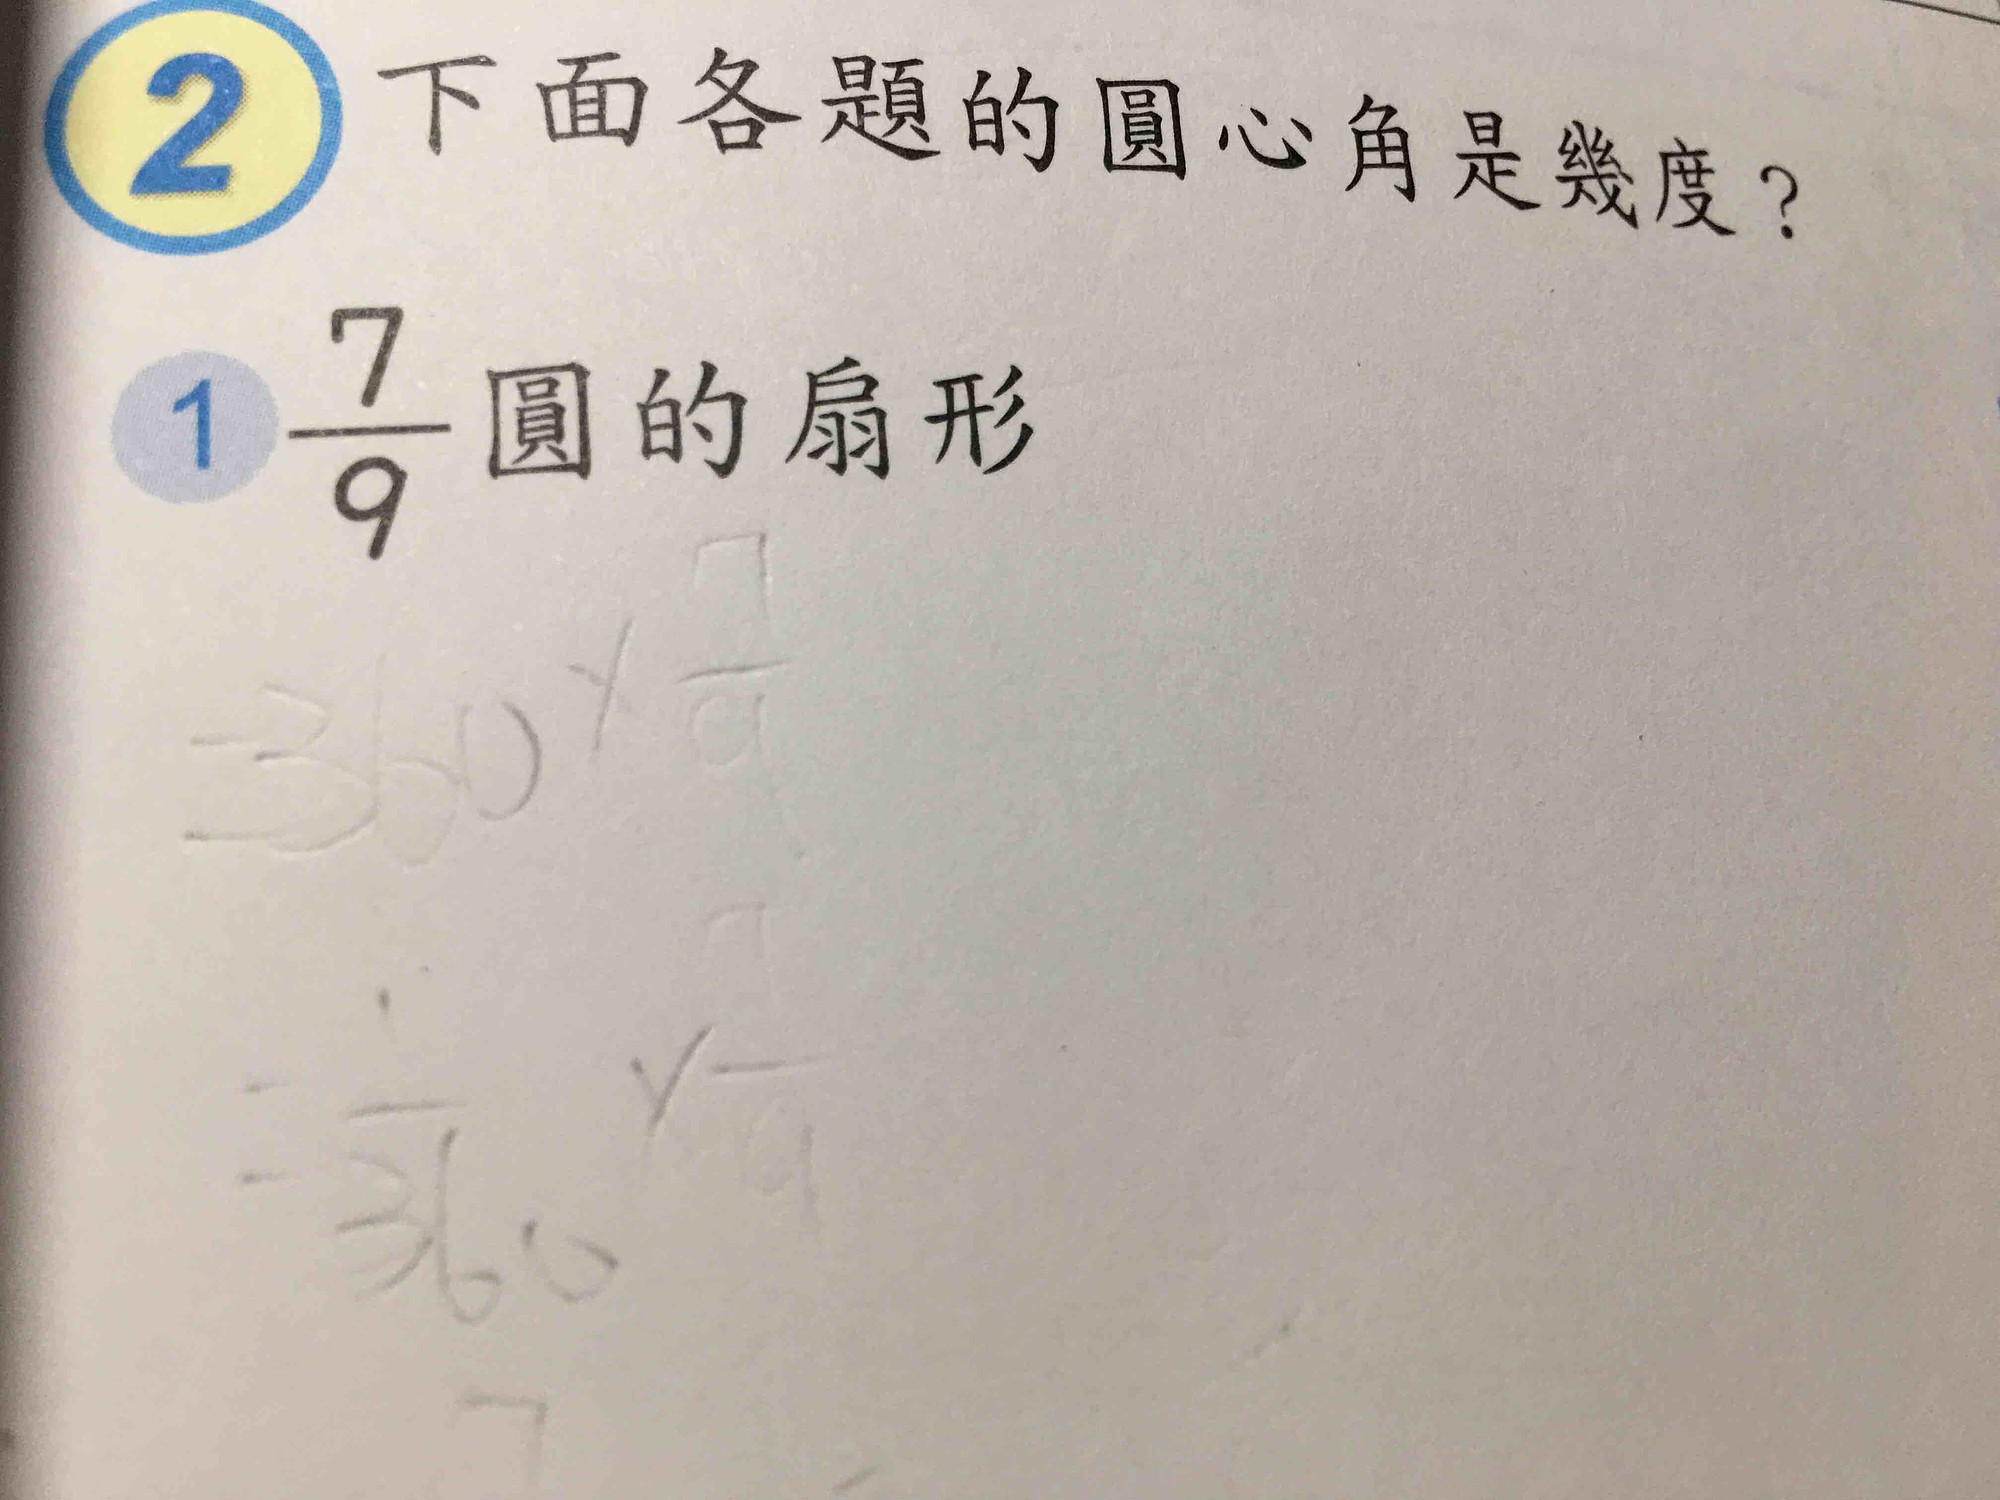 2 下面各題的圓心角是幾度？
1 7/9 圓的扇形
=360×7/9
=1/360×7/9
7